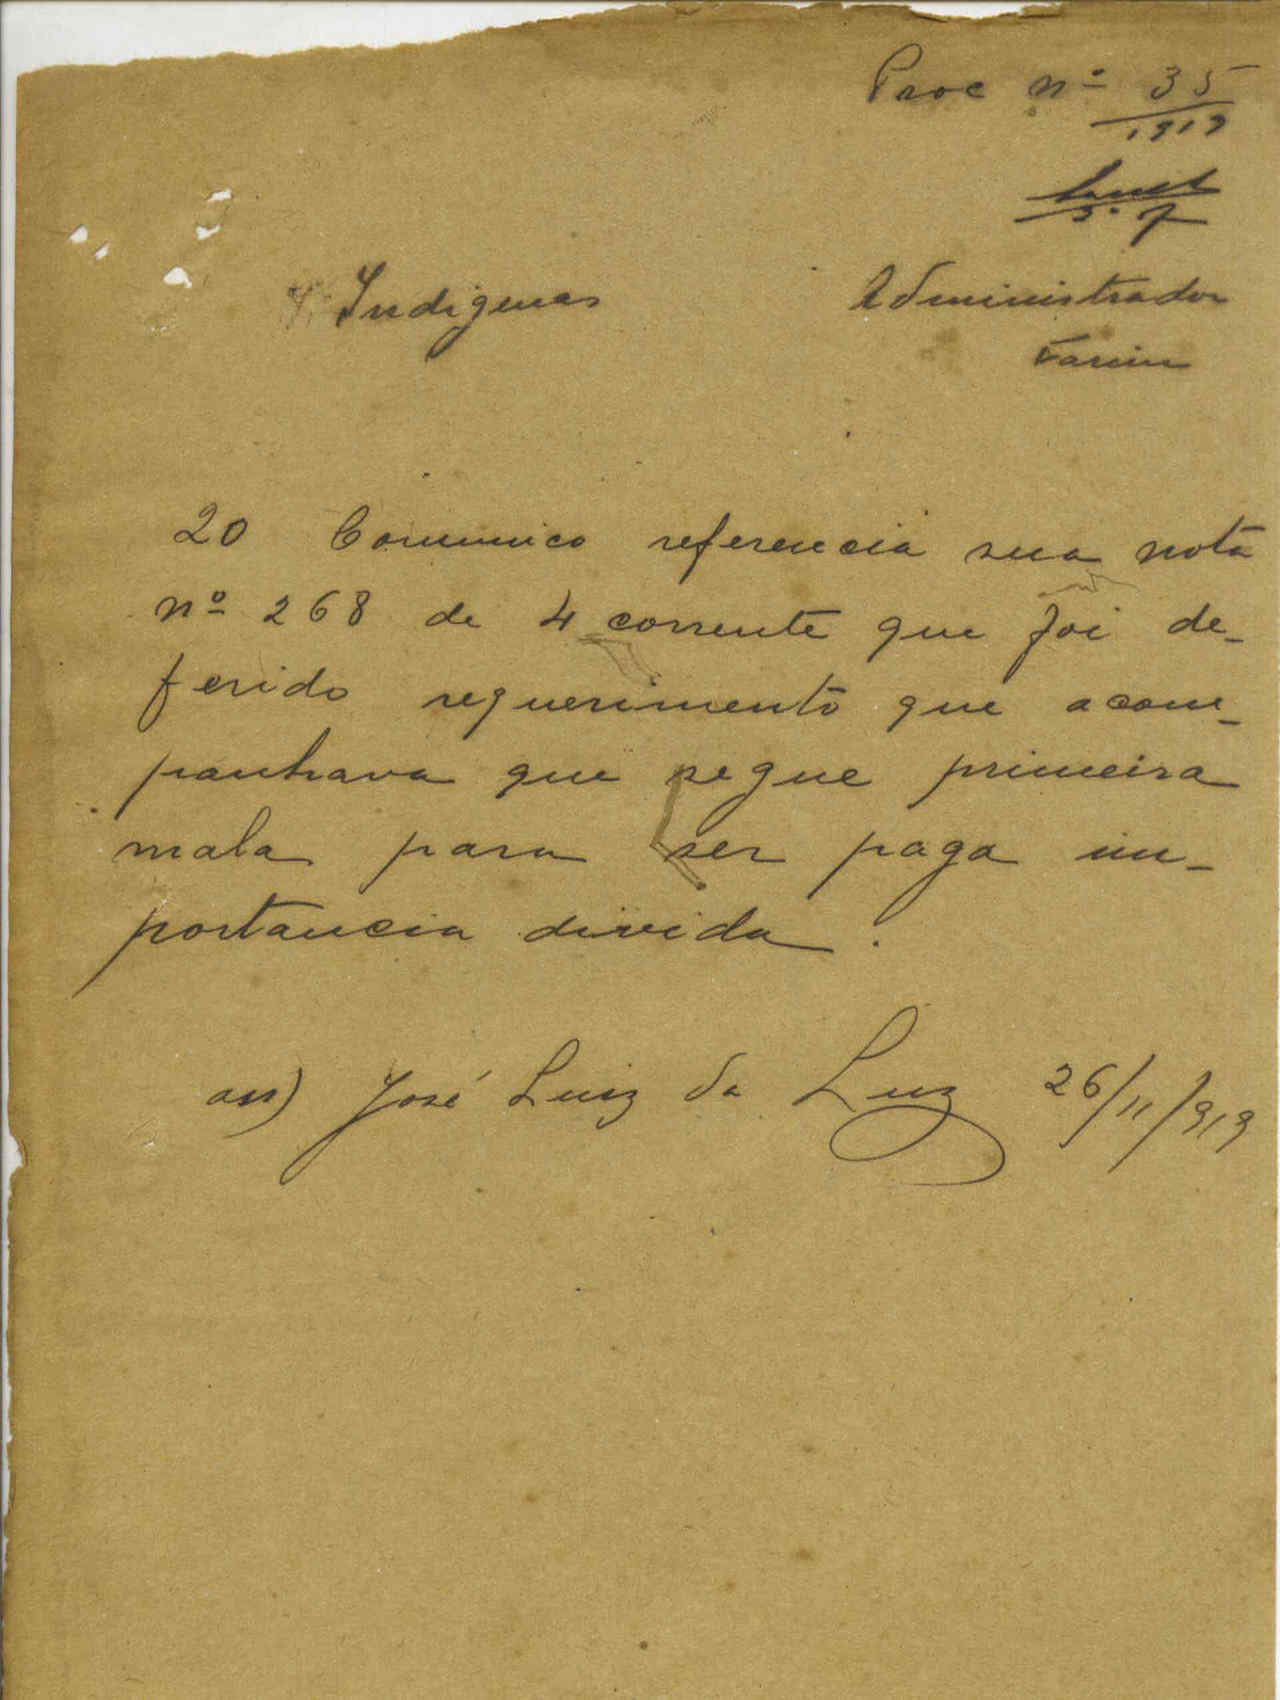 Proc nº 35
1919
Indigenas
Administrador
Farim
20 Comunico referencia sua nota
nº 268 de 4 corrente que foi de-
ferido requerimento que acom-
panhava que segue primeira
mala para ser paga im-
portancia divida.
ass) José Luiz da Luz 26/11/919